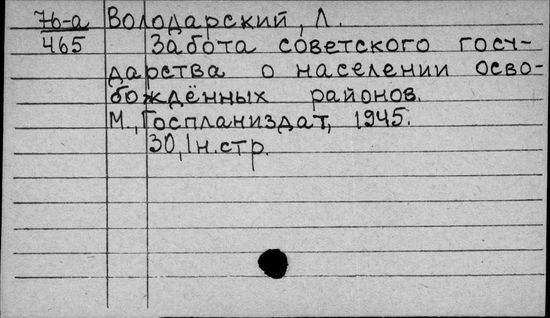 76-а Володарский, Л.
465 Забота советского госу-
дарства о населении осво-
бождённых районов.
М., Госпланиздат, 1945.
30, 1 н. стр.